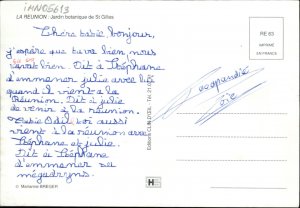 imN05613
LA REUNION : Jardin botanique de St Gilles
Chère babie bonjour,
j'espère que tu va bien nous
ausie bien. Dit à Stéphane
d'emmener julie avec lui
quand il vient a la
Réunion. Dit à julie
de venir à la réunion.
Odile toi aussi
vient à la réunion avec
Stéphane et julie.
Dit à Stéphane
d'emmener ses
mégadryns.
© Marianne BREGER
Editions CLIN D'OEIL - Tél. 21
RE 63
IMPRIMÉ
EN FRANCE